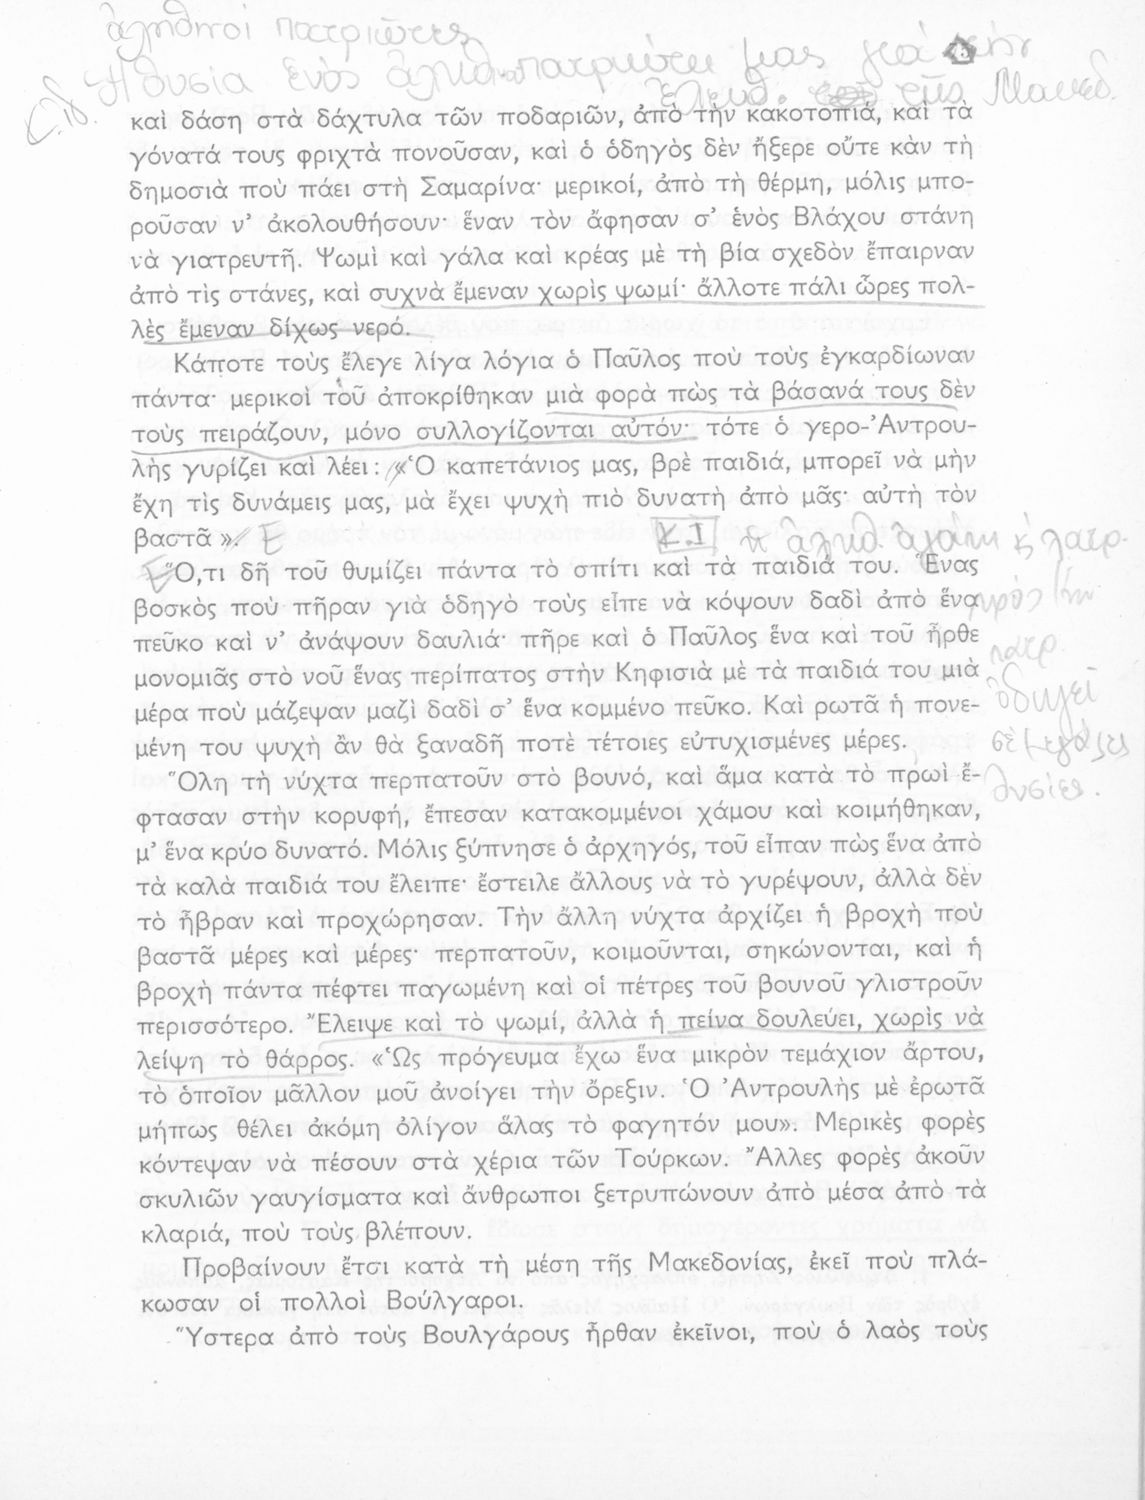 ἀληθινοί πατριῶτες
Κ.ιδ. Ἡ θυσία ἑνὸς ἀληθ. πατριώτη μας γιά τήν
ἐλευθ. τῆς Μακεδ.
καὶ δάση στὰ δάχτυλα τῶν ποδαριῶν, ἀπὸ τὴν κακοτοπιά, καὶ τὰ
γόνατά τους φριχτὰ πονοῦσαν, καὶ ὁ ὁδηγὸς δὲν ἤξερε οὔτε κὰν τὴ
δημοσιὰ ποὺ πάει στὴ Σαμαρίνα· μερικοί, ἀπὸ τὴ θέρμη, μόλις μπο-
ροῦσαν ν’ ἀκολουθήσουν· ἕναν τὸν ἄφησαν σ’ ἑνὸς Βλάχου στάνη
νὰ γιατρευτῆ. Ψωμὶ καὶ γάλα καὶ κρέας μὲ τὴ βία σχεδὸν ἔπαιρναν
ἀπὸ τὶς στάνες, καὶ συχνὰ ἔμεναν χωρὶς ψωμί· ἄλλοτε πάλι ὧρες πολ-
λὲς ἔμεναν δίχως νερό.
Κάποτε τοὺς ἔλεγε λίγα λόγια ὁ Παῦλος ποὺ τοὺς ἐγκαρδίωναν
πάντα· μερικοὶ τοῦ ἀποκρίθηκαν μιὰ φορὰ πὼς τὰ βάσανά τους δὲν
τοὺς πειράζουν, μόνο συλλογίζονται αὐτόν· τότε ὁ γερο-Ἀντρου-
λὴς γυρίζει καὶ λέει: «Ὁ καπετάνιος μας, βρὲ παιδιά, μπορεῖ νὰ μὴν
ἔχη τὶς δυνάμεις μας, μὰ ἔχει ψυχὴ πιὸ δυνατὴ ἀπὸ μᾶς· αὐτὴ τὸν
βαστᾶ».
Κ.Ι Ἡ ἀληθ. ἀγάπη κ λατρ.
πρός τήν
πατρ.
ὁδηγεῖ
σὲ μεγάλες
θυσίες.
Ὅ,τι δῆ τοῦ θυμίζει πάντα τὸ σπίτι καὶ τὰ παιδιά του. Ἕνας
βοσκὸς ποὺ πῆραν γιὰ ὁδηγὸ τοὺς εἶπε νὰ κόψουν δαδὶ ἀπὸ ἕνα
πεῦκο καὶ ν’ ἀνάψουν δαυλιά· πῆρε καὶ ὁ Παῦλος ἕνα καὶ τοῦ ἦρθε
μονομιᾶς στὸ νοῦ ἕνας περίπατος στὴν Κηφισιὰ μὲ τὰ παιδιά του μιὰ
μέρα ποὺ μάζεψαν μαζὶ δαδὶ σ’ ἕνα κομμένο πεῦκο. Καὶ ρωτᾶ ἡ πονε-
μένη του ψυχὴ ἂν θὰ ξαναδῆ ποτὲ τέτοιες εὐτυχισμένες μέρες.
Ὅλη τὴ νύχτα περπατοῦν στὸ βουνό, καὶ ἅμα κατὰ τὸ πρωὶ ἔ-
φτασαν στὴν κορυφή, ἔπεσαν κατακομμένοι χάμου καὶ κοιμήθηκαν,
μ’ ἕνα κρύο δυνατό. Μόλις ξύπνησε ὁ ἀρχηγός, τοῦ εἶπαν πὼς ἕνα ἀπὸ
τὰ καλὰ παιδιά του ἔλειπε· ἔστειλε ἄλλους νὰ τὸ γυρέψουν, ἀλλὰ δὲν
τὸ ἧβραν καὶ προχώρησαν. Τὴν ἄλλη νύχτα ἀρχίζει ἡ βροχὴ ποὺ
βαστᾶ μέρες καὶ μέρες· περπατοῦν, κοιμοῦνται, σηκώνονται, καὶ ἡ
βροχὴ πάντα πέφτει παγωμένη καὶ οἱ πέτρες τοῦ βουνοῦ γλιστροῦν
περισσότερο. Ἔλειψε καὶ τὸ ψωμί, ἀλλὰ ἡ πείνα δουλεύει, χωρὶς νὰ
λείψη τὸ θάρρος. «Ὡς πρόγευμα ἔχω ἕνα μικρὸν τεμάχιον ἄρτου,
τὸ ὁποῖον μᾶλλον μοῦ ἀνοίγει τὴν ὄρεξιν. Ὁ Ἀντρουλὴς μὲ ἐρωτᾶ
μήπως θέλει ἀκόμη ὀλίγον ἅλας τὸ φαγητόν μου». Μερικὲς φορὲς
κόντεψαν νὰ πέσουν στὰ χέρια τῶν Τούρκων. Ἄλλες φορὲς ἀκοῦν
σκυλιῶν γαυγίσματα καὶ ἄνθρωποι ξετρυπώνουν ἀπὸ μέσα ἀπὸ τὰ
κλαριά, ποὺ τοὺς βλέπουν.
Προβαίνουν ἔτσι κατὰ τὴ μέση τῆς Μακεδονίας, ἐκεῖ ποὺ πλά-
κωσαν οἱ πολλοὶ Βούλγαροι.
Ὕστερα ἀπὸ τοὺς Βουλγάρους ἦρθαν ἐκεῖνοι, ποὺ ὁ λαὸς τοὺς